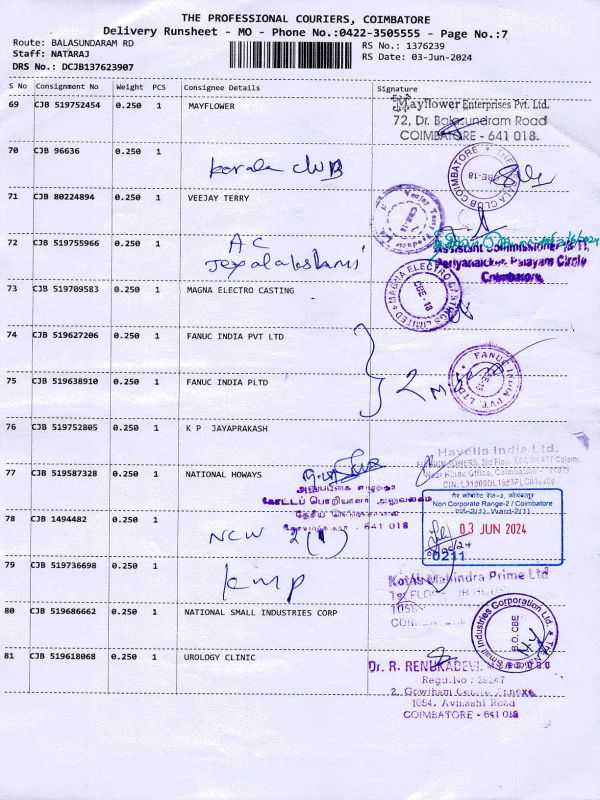 THE PROFESSIONAL COURIERS, COIMBATORE
Delivery Runsheet - MO - Phone No.:0422-3505555 - Page No.:7
Route: BALASUNDARAM RD
Staff: NATARAJ
DRS No.: DCJB137623907
RS No.: 1376239
RS Date: 03-Jun-2024
S No Consignment No Weight PCS Consignee Details Signature
69 CJB 519752454 0.250 1 MAYFLOWER
Mayflower Enterprises Pvt. Ltd.
72, Dr. Balasundram Road
COIMBATORE - 641 018.
70 CJB 96636 0.250 1 Kerala club
71 CJB 80224894 0.250 1 VEEJAY TERRY
72 CJB 519755966 0.250 1 AC
Assistant Commissioner
Periyanaicken Palayam Circle
Coimbatore.
73 CJB 519709583 0.250 1 MAGNA ELECTRO CASTING
MAGNA ELECTRO CASTINGS LIMITED
CBE-18
74 CJB 519627206 0.250 1 FANUC INDIA PVT LTD
75 CJB 519638910 0.250 1 FANUC INDIA PLTD
2
FANUC INDIA PVT. LTD.
76 CJB 519752805 0.250 1 K P JAYAPRAKASH
Havells India Ltd.
77 CJB 519587328 0.250 1 NATIONAL HOWAYS
641 018
78 CJB 1494482 0.250 1 NCW 2(1)
Non Corporate Range-2 / Coimbatore
03 JUN 2024
0211
79 CJB 519736698 0.250 1 kmp
Kotak Mahindra Prime Ltd
80 CJB 519686662 0.250 1 NATIONAL SMALL INDUSTRIES CORP
Small Industries Corporation Ltd.
B.O. CBE
81 CJB 519618068 0.250 1 UROLOGY CLINIC
Dr. R. RENUKADEVI,
Regd.No : 29247
2, Gowtham Centre Annexe
1054, Avinashi Road
COIMBATORE - 641 018